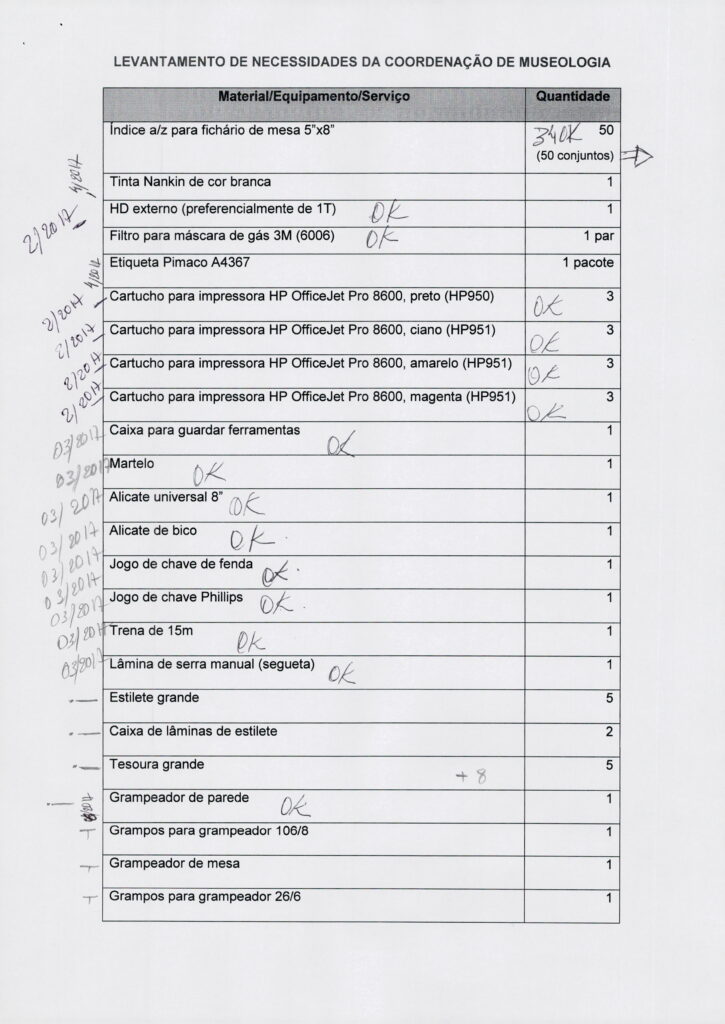 LEVANTAMENTO DE NECESSIDADES DA COORDENAÇÃO DE MUSEOLOGIA
Material/Equipamento/Serviço Quantidade
Índice a/z para fichário de mesa 5”x8” 34OK 50
(50 conjuntos)
4/2017 Tinta Nankin de cor branca 1
2/2017 HD externo (preferencialmente de 1T) OK 1
Filtro para máscara de gás 3M (6006) OK 1 par
4/2017 Etiqueta Pimaco A4367 1 pacote
2/2017 Cartucho para impressora HP OfficeJet Pro 8600, preto (HP950) OK 3
2/2017 Cartucho para impressora HP OfficeJet Pro 8600, ciano (HP951) OK 3
2/2017 Cartucho para impressora HP OfficeJet Pro 8600, amarelo (HP951) OK 3
2/2017 Cartucho para impressora HP OfficeJet Pro 8600, magenta (HP951) OK 3
03/2017 Caixa para guardar ferramentas OK 1
03/2017 Martelo OK 1
03/2017 Alicate universal 8” OK 1
03/2017 Alicate de bico OK. 1
03/2017 Jogo de chave de fenda OK. 1
03/2017 Jogo de chave Phillips OK. 1
03/2017 Trena de 15m OK 1
03/2017 Lâmina de serra manual (segueta) OK 1
Estilete grande 5
Caixa de lâminas de estilete 2
Tesoura grande + 8 5
Grampeador de parede OK 1
Grampos para grampeador 106/8 1
Grampeador de mesa 1
Grampos para grampeador 26/6 1